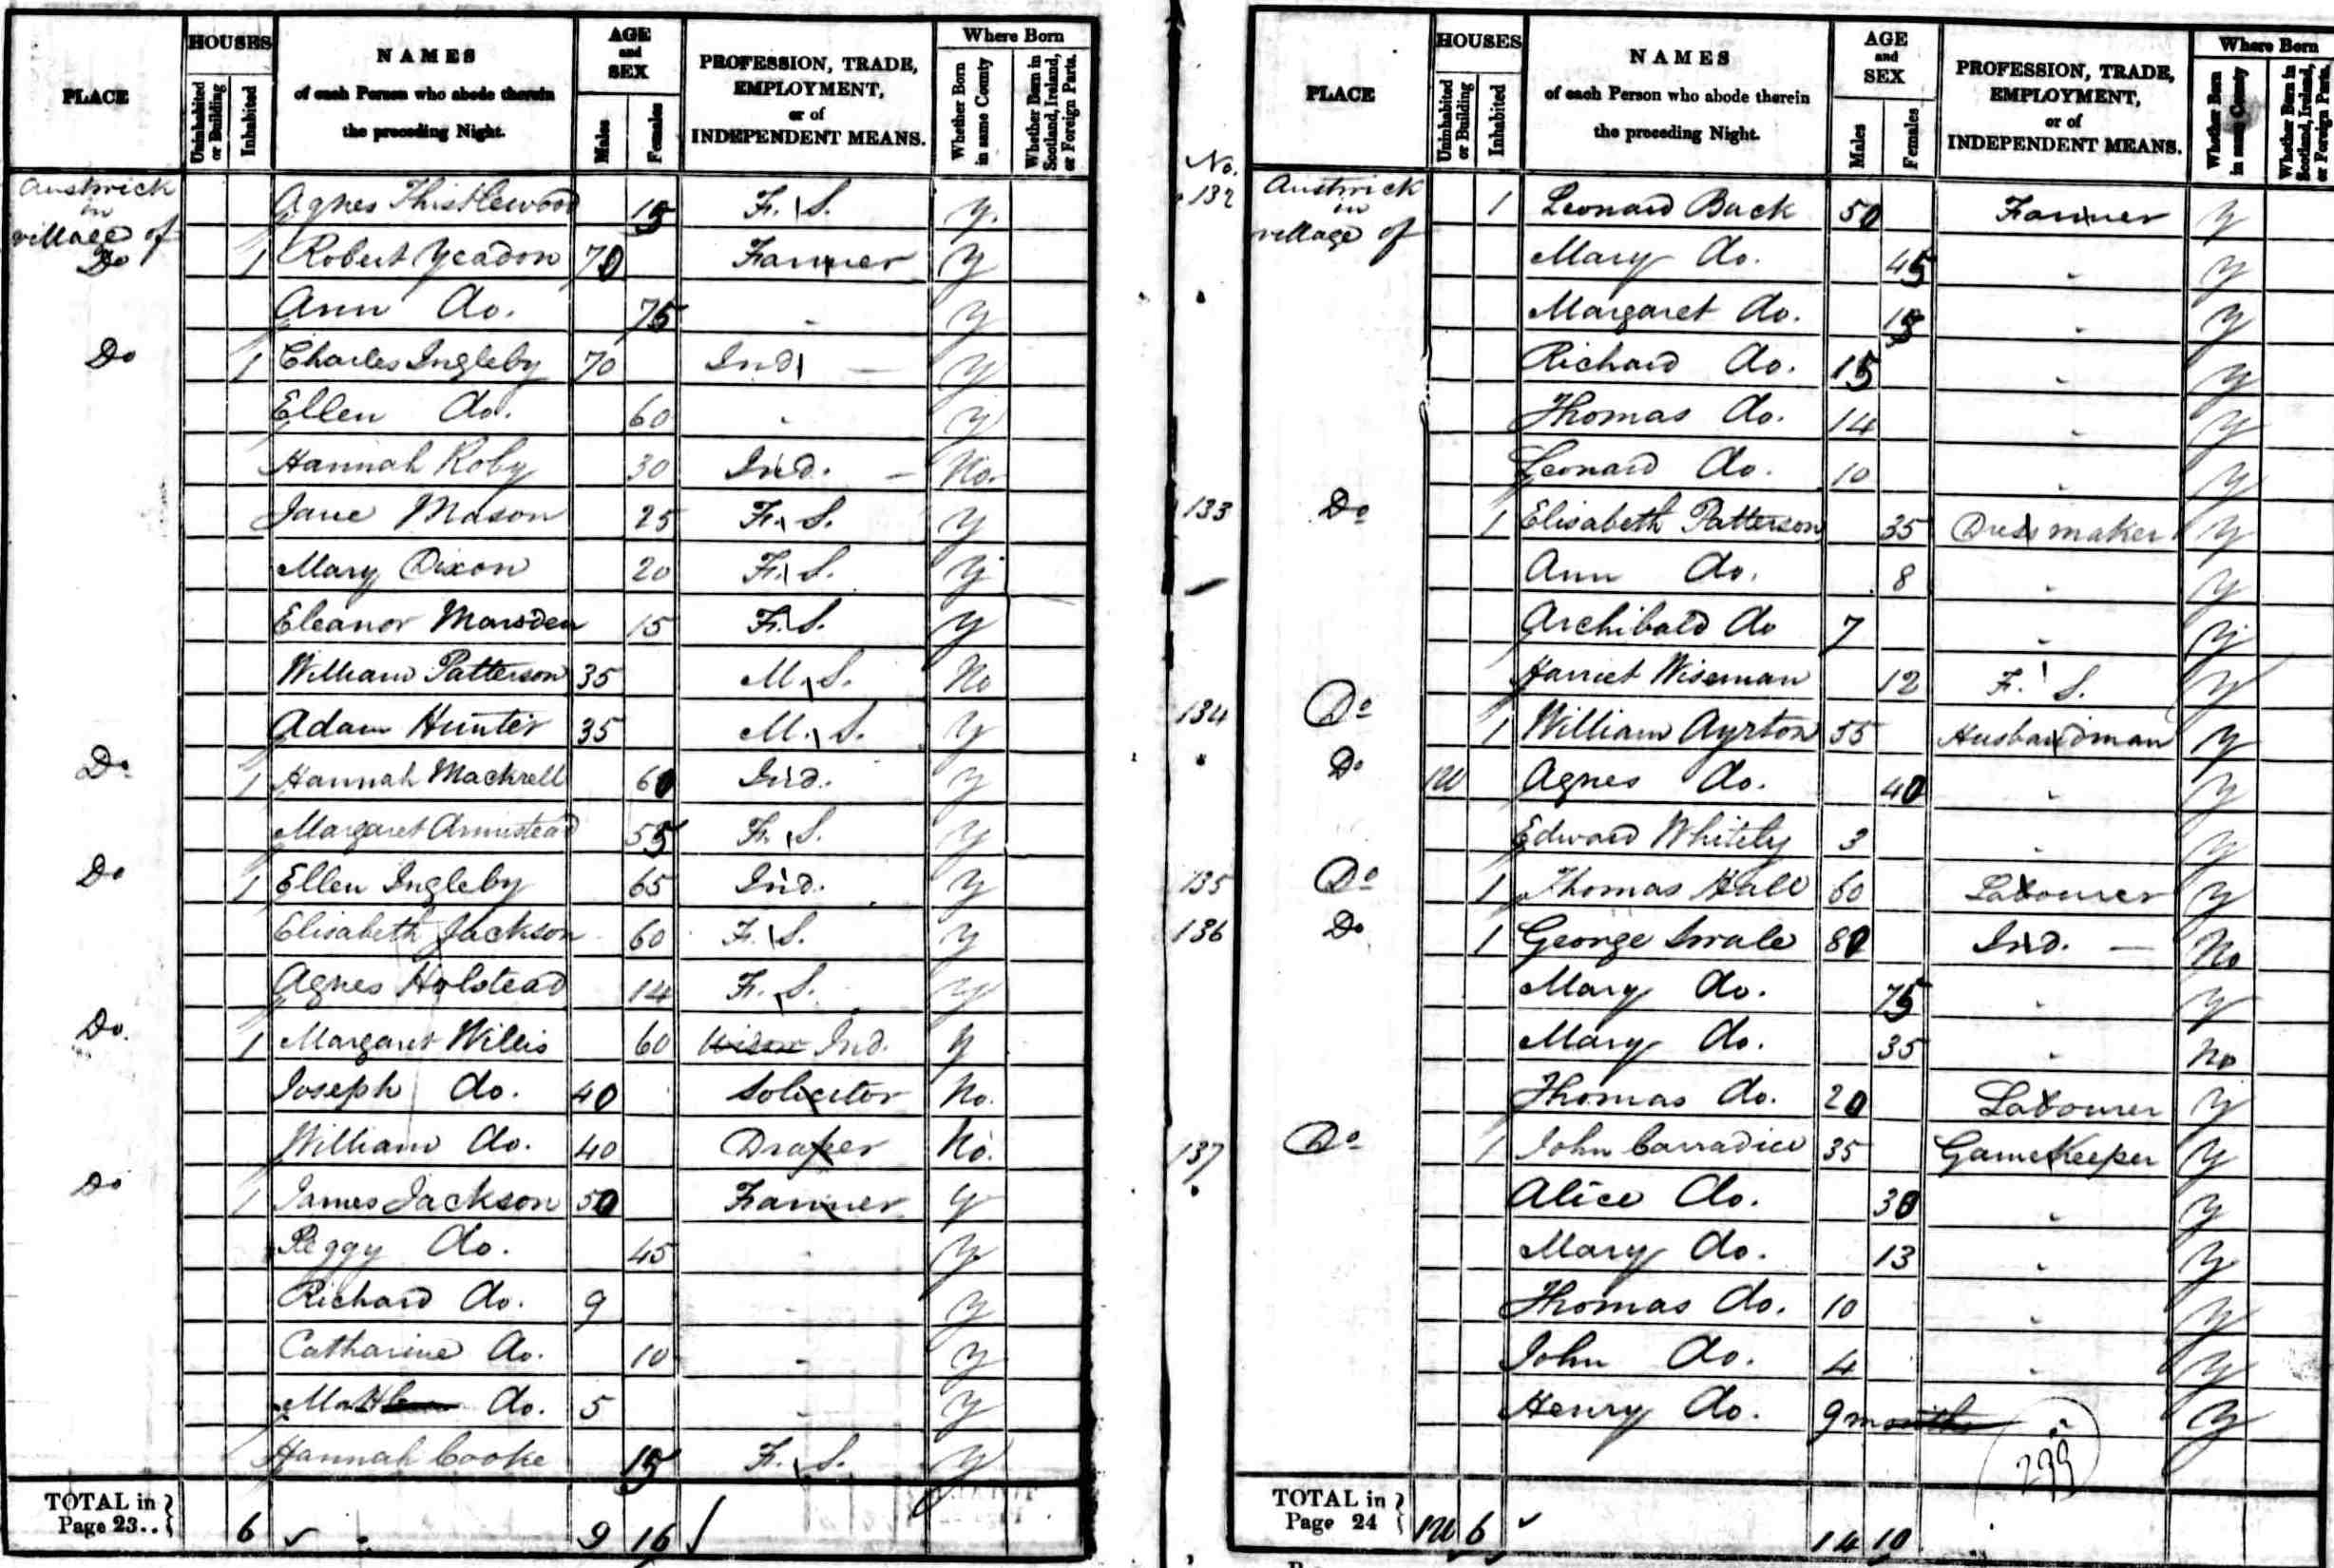 PLACE
HOUSES
Uninhabited or Building
Inhabited
NAMES
of each Person who abode therein
the preceding Night.
AGE
and
SEX
Males
Females
PROFESSION, TRADE,
EMPLOYMENT,
or of
INDEPENDENT MEANS.
Where Born
Whether Born in same County
Whether Born in Scotland, Ireland, or Foreign Parts.
Austwick in village of Agnes Thistlewood 15 F. S. y.
Do 1 Robert Yeadon 70 Farmer y
Ann do. 75 y
Do 1 Charles Ingleby 70 Ind y
Ellen do. 60 y
Hannah Roby 30 Ind. No.
Jane Mason 25 F. S. y
Mary Dixon 20 F. S. y
Eleanor Marsden 15 F. S. y
William Patterson 35 M. S. No
Adam Hunter 35 M. S. y
Do 1 Hannah Mackrell 60 Ind. y
Margaret Armistead 55 F. S. y
Do 1 Ellen Ingleby 65 Ind. y
Elisabeth Jackson 60 F. S. y
Agnes Holstead 14 F. S. y
Do. 1 Margaret Willis 60 Ind. y
Joseph do. 40 Solicitor No.
William do. 40 Draper No.
Do 1 James Jackson 50 Farmer y
Peggy do. 45 y
Richard do. 9 y
Catharine do. 10 y
do. 5 y
Hannah Cooke 15 F. S. y
TOTAL in
Page 23.. 6 9 16
PLACE
HOUSES
Uninhabited or Building
Inhabited
NAMES
of each Person who abode therein
the preceding Night.
AGE
and
SEX
Males
Females
PROFESSION, TRADE,
EMPLOYMENT,
or of
INDEPENDENT MEANS.
Where Born
Whether Born in same County
Whether Born in Scotland, Ireland, or Foreign Parts.
No.
132 Austwick in village of 1 Leonard Buck 50 Farmer y
Mary do. 45 y
Margaret do. 15 y
Richard do. 15 y
Thomas do. 14 y
Leonard do. 10 y
133 Do 1 Elisabeth Patterson 35 Dress maker y
Ann do. 8 y
Archibald do 7 y
Harriet Wiseman 12 F. S. y
134 Do 1 William Ayrton 55 Husbandman y
Do 1U Agnes do. 40 y
Edward Whitely 3 y
135 Do 1 Thomas Hall 60 Labourer y
136 Do 1 George Swale 80 Ind. No
Mary do. 75 y
Mary do. 35 No
Thomas do. 20 Labourer y
137 Do 1 John Carradice 35 Gamekeeper y
Alice do. 30 y
Mary do. 13 y
Thomas do. 10 y
John do. 4 y
Henry do. 9 months y
TOTAL in
Page 24 1U 6 14 10